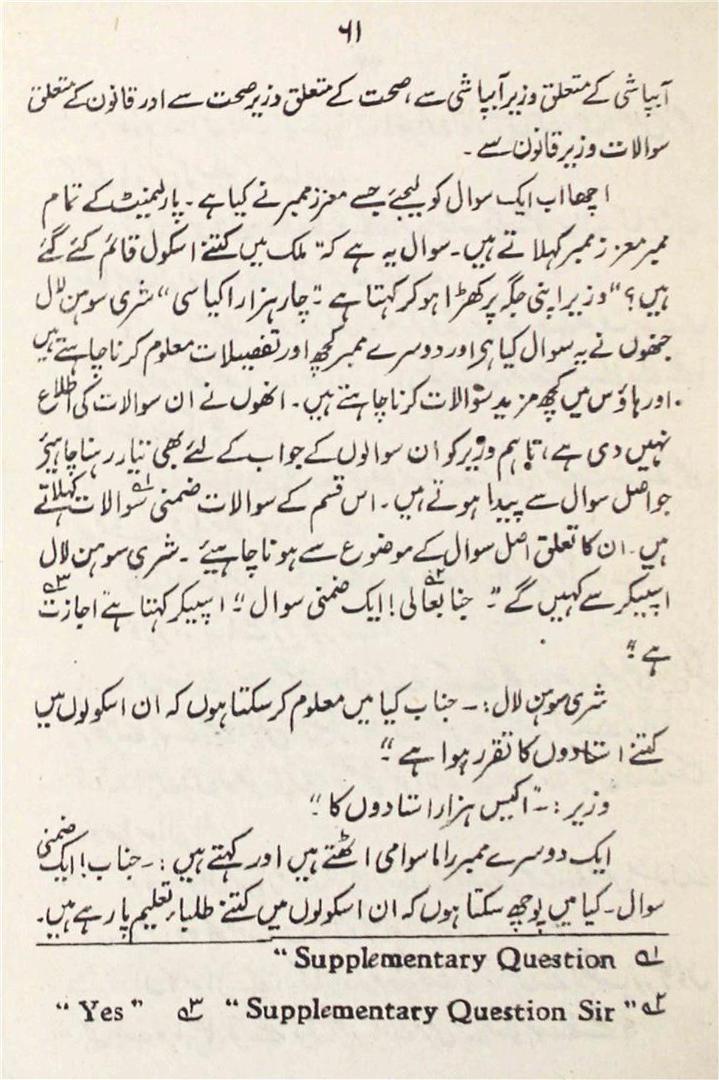 ۶۱
آبپاشی کے متعلق وزیر آبپاشی سے، صحت کے متعلق وزیر صحت سے اور قانون کے متعلق
سوالات وزیر قانون سے ۔
اچھا اب ایک سوال کو لیجئے جسے معزز ممبر نے کیا ہے ۔ پارلیمنٹ کے تمام
ممبر معزز ممبر کہلاتے ہیں۔ سوال یہ ہے کہ "ملک میں کتنے اسکول قائم کئے گئے
ہیں؟" وزیر اپنی جگہ پر کھڑا ہو کر کہتا ہے "چار ہزار اکیاسی" شری سوہن لال
جنھوں نے یہ سوال کیا ہے اور دوسرے ممبر کچھ اور تفصیلات معلوم کرنا چاہتے ہیں
اور ہاؤس میں کچھ مزید سوالات کرنا چاہتے ہیں۔ انھوں نے ان سوالات کی اطلاع
نہیں دی ہے، تاہم وزیر کو ان سوالوں کے جواب کے لئے بھی تیار رہنا چاہیئے
جو اصل سوال سے پیدا ہوتے ہیں۔ اس قسم کے سوالات ضمنی سوالات ؎۱ کہلاتے
ہیں۔ ان کا تعلق اصل سوال کے موضوع سے ہونا چاہیئے ۔ شری سوہن لال
اسپیکر سے کہیں گے "جناب عالی! ایک ضمنی سوال ؎۲" اسپیکر کہتا ہے "اجازت ؎۳
ہے"
شری موہن لال:۔ جناب کیا میں معلوم کر سکتا ہوں کہ ان اسکولوں میں
کتنے استادوں کا تقرر ہوا ہے"
وزیر :۔ "اکیس ہزار استادوں کا"
ایک دوسرے ممبر راما سوامی اٹھتے ہیں اور کہتے ہیں :۔ جناب! ایک ضمنی
سوال۔ کیا میں پوچھ سکتا ہوں کہ ان اسکولوں میں کتنے طلباء تعلیم پا رہے ہیں۔
؎۱ Supplementary Question "
؎۲ " Supplementary Question Sir " ؎۳ " Yes "